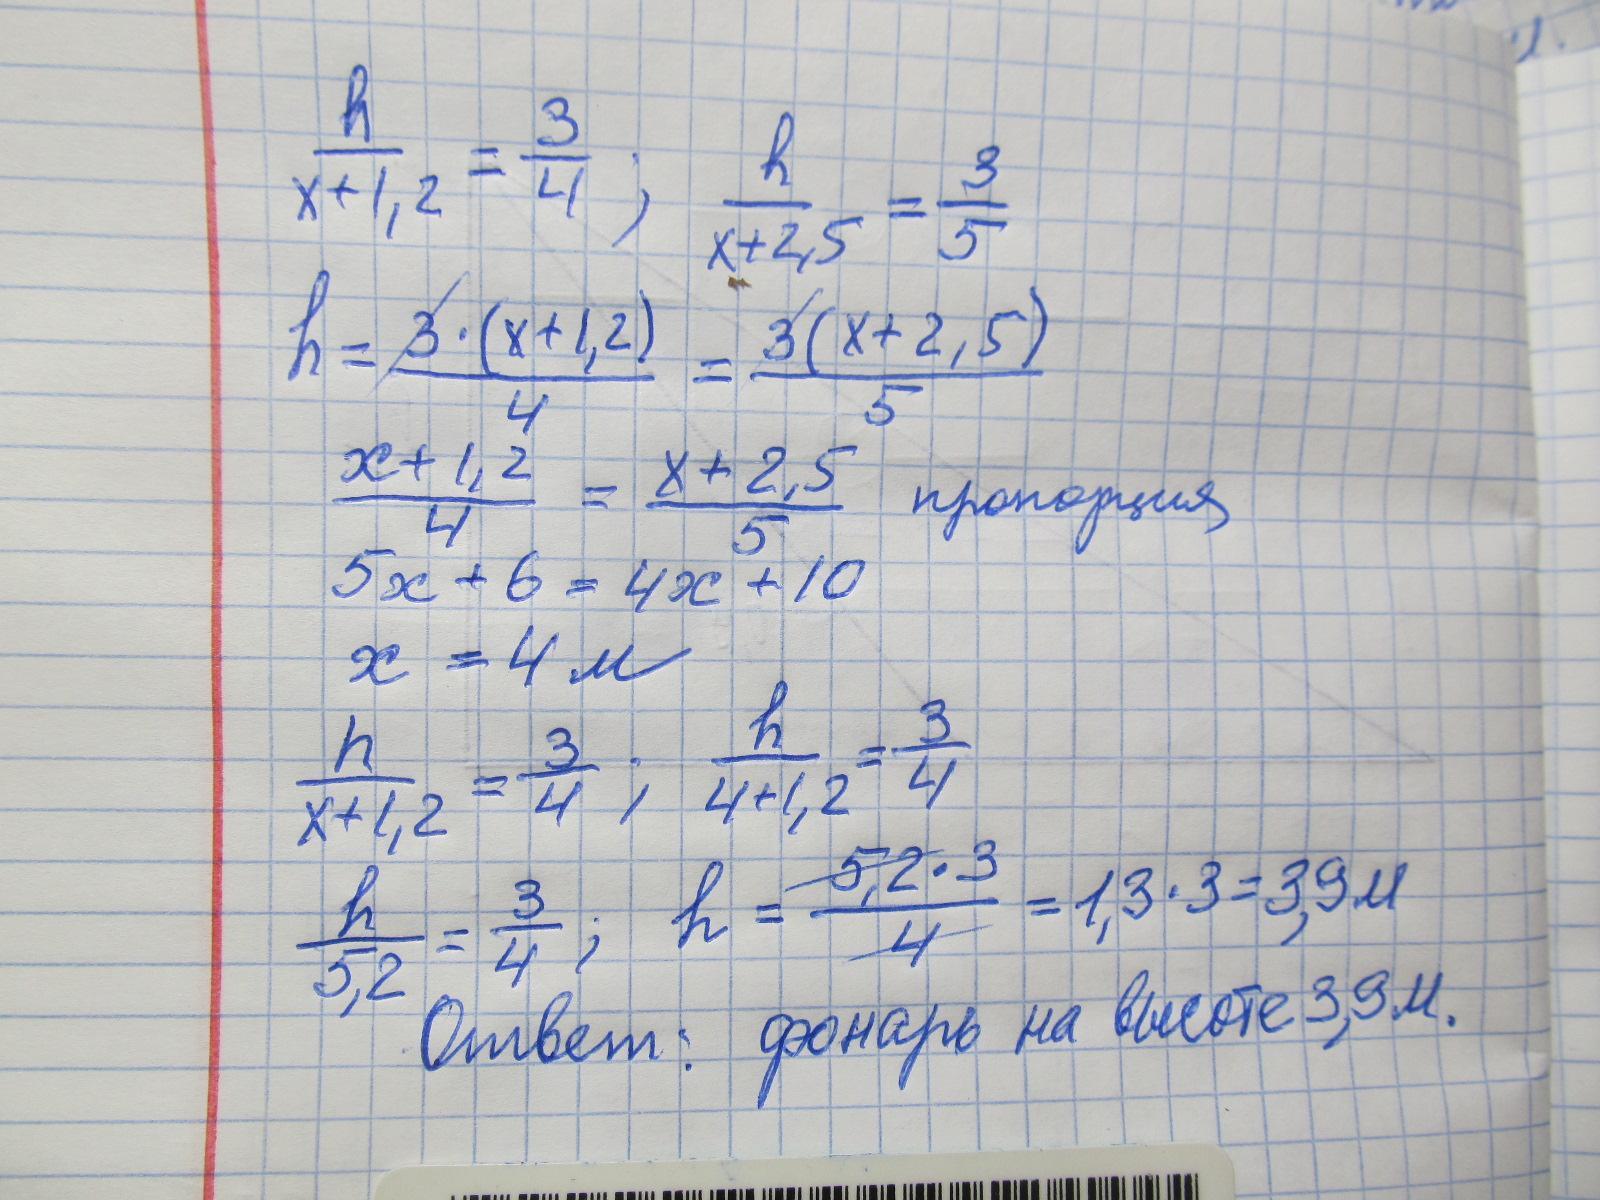 h/(x+1,2) = 3/4 ; h/(x+2,5) = 3/5
h = 3·(x+1,2)/4 = 3(x+2,5)/5
(x+1,2)/4 = (x+2,5)/5 пропорция
5x + 6 = 4x + 10
x = 4 м
h/(x+1,2) = 3/4 ; h/(4+1,2) = 3/4
h/5,2 = 3/4 ; h = 5,2·3/4 = 1,3·3 = 3,9 м
Ответ: фонарь на высоте 3,9 м.